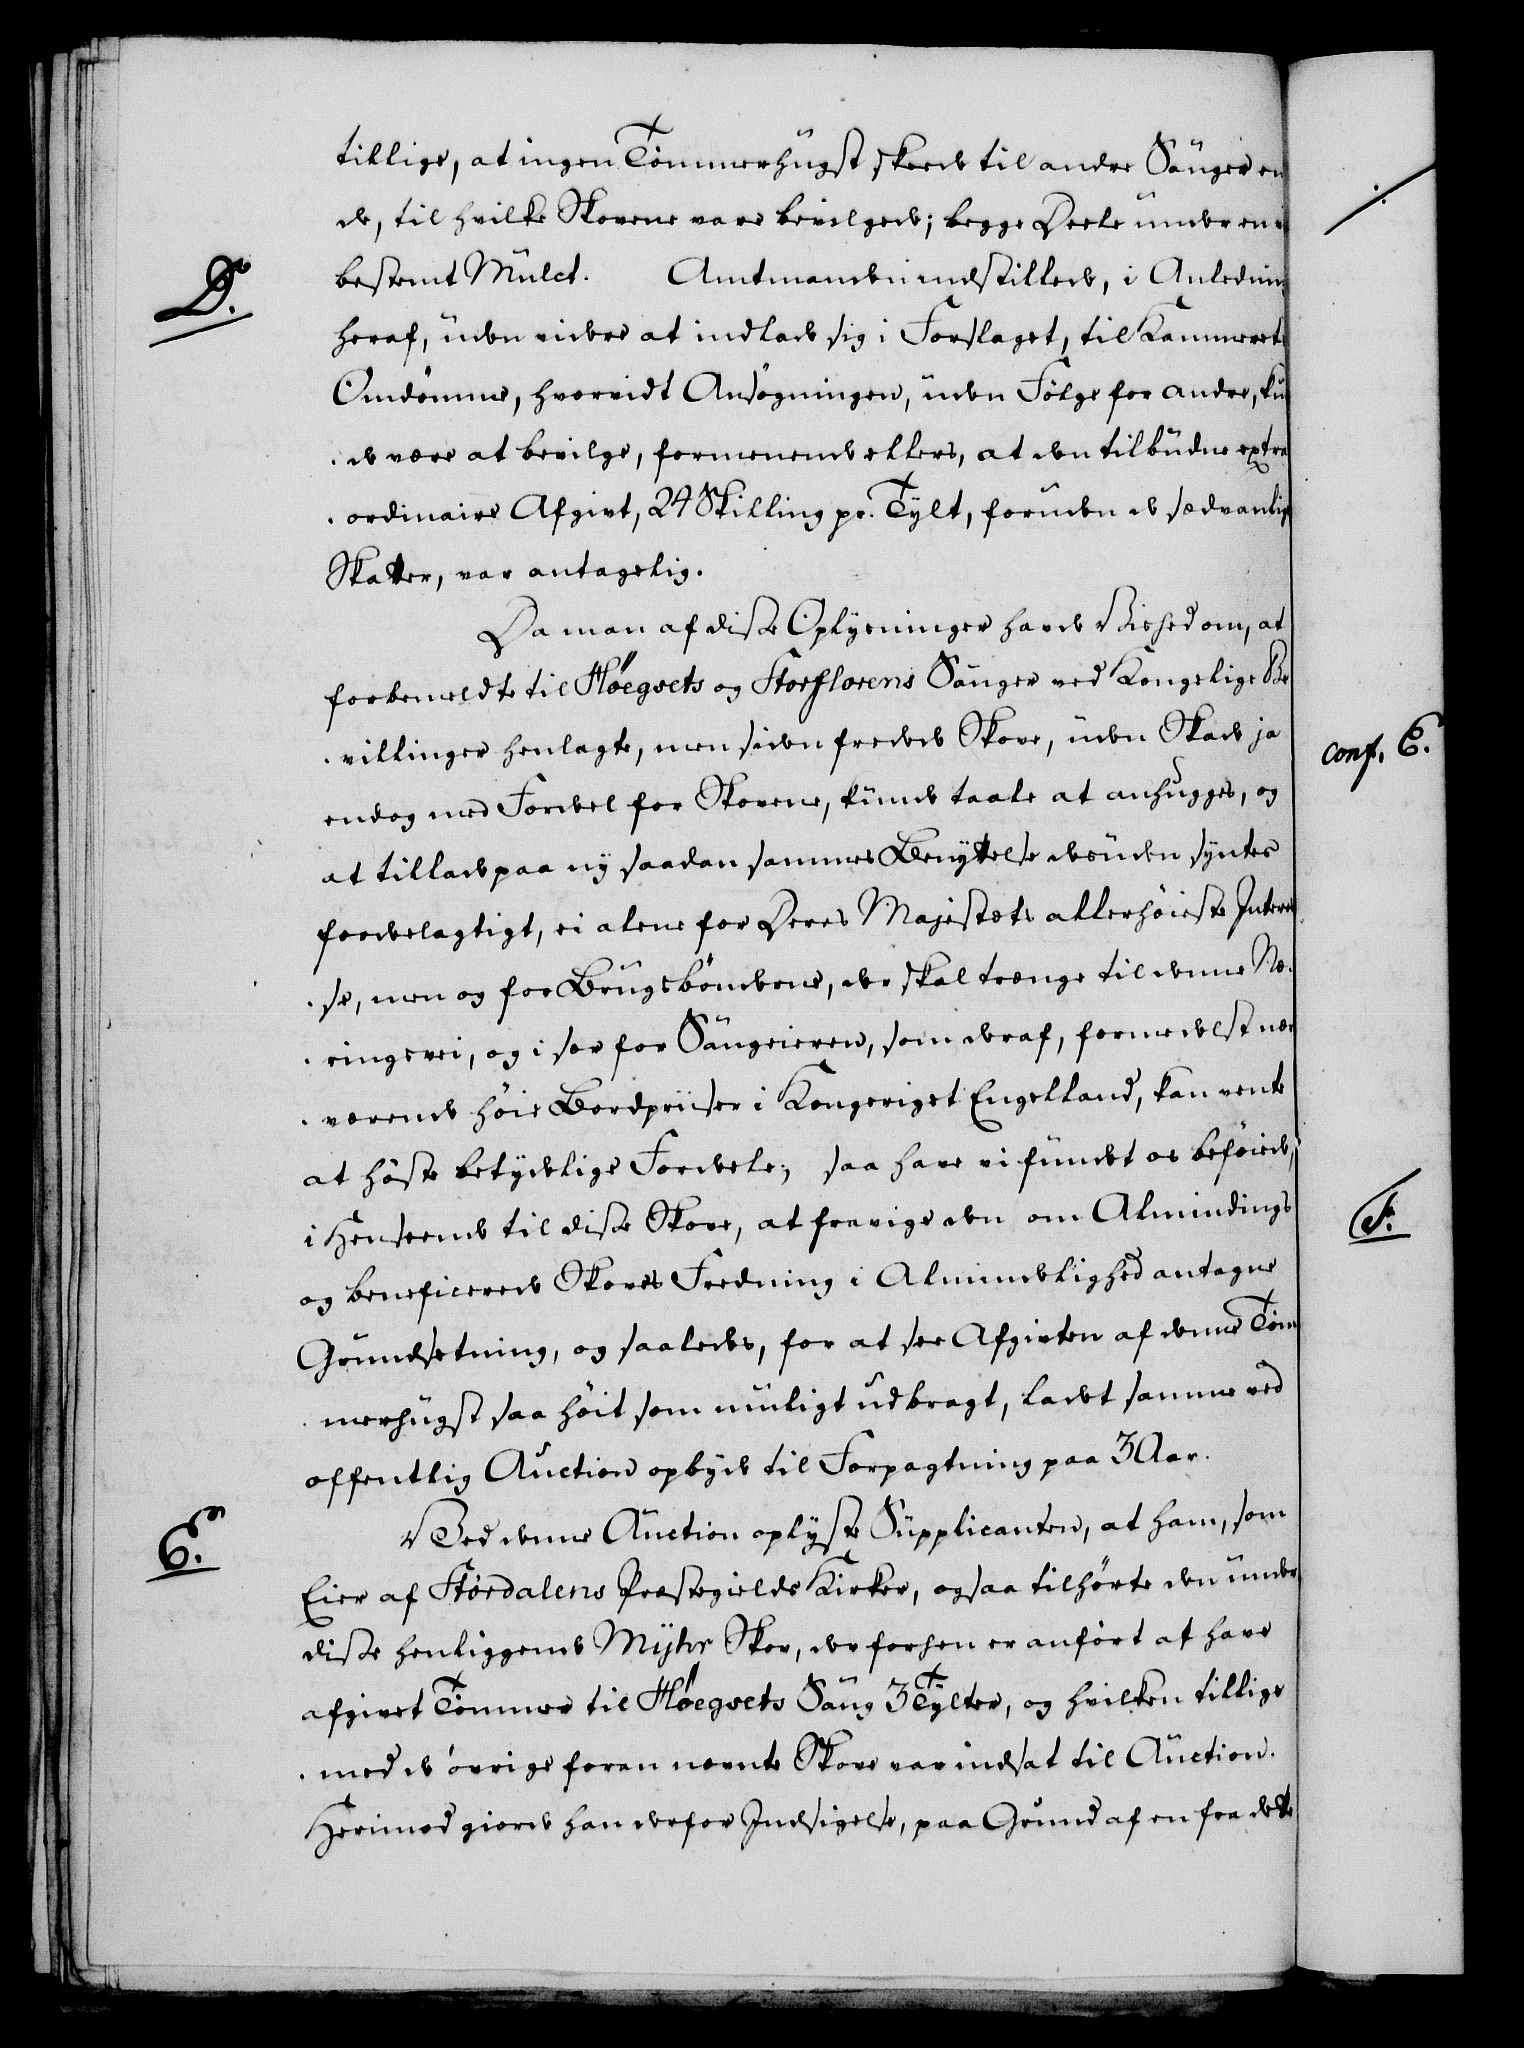 tillige, at ingen Tömmerhugst skeede til andre Sauger en
de, til hvilke Skovene vare bevilgede; begge Deele under en
bestemt Mulct. Amtmanden indstillede, i Anledning
D.
heraf, uden videre at indlade sig i Forslaget, til Kammerets
Omdömme, hvorvidt Ansögningen, uden Fölge for andre, kun
de være at bevilge, formenende ellers, at den tilbudne extra
ordinaire Afgivt, 24 Skilling pr. Tylt, foruden de sædvanlige
Skatter, var antagelig.
Da man af disse Oplysninger havde Vished om, at
forbemeldte til Høegsets og Storflorens Sauger ved Kongelige Be
villinger henlagte, men siden fredede Skove, uden Skade ja
conf. E.
endog med Fordeel for Skovene, kunde taale at anhugges, og
at tillade paa ny saadan sammes Benyttelse desuden syntes
fordelagtigt, ei alene for Deres Majestæts allerhöieste Interes
se, men og for Brugsbönderne, der skal trænge til denne Næ
ringsvei, og i sær for Saugeieren, som deraf, formedelst nær
værende höie Bordpriiser i Kongeriget Engelland, kan vente
at höste betydelige Fordele; saa have vi fundet os beföiede,
i Henseende til disse Skove, at fravige den om Almindings
F.
og beneficerede Skoves Fredning i Almindelighed antagne
Grundsetning, og saaledes, for at see Afgivten af denne Töm
merhugst saa höit som muligt udbragt, ladet samme ved
offentlig Auction opbyde til Forpagtning paa 3 Aar.
Ved denne Auction oplyste Supplicanten, at ham, som
E.
Eier af Størdalens Præstegields Kirker, ogsaa tilhørte den under
disse henliggende Myhr Skov, der forhen er anfört at have
afgivet Tömmer til Høegsets Saug 3 Tylter, og hvilken tillige
med de övrige foran nævnte Skove var indsat til Auction.
Herimod giorde han derfor Indsigelse, paa Grund af en fra dette